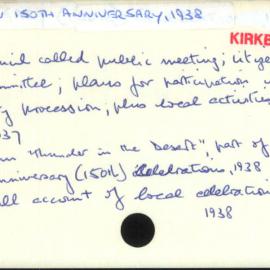 150TH ANNIVERSARY, 1938
KIRKB
called public meeting; citize
mmittee; plans for participation i
ty procession, plus local activities
937
"Thunder in the Desert", part of
nniversary (150th) Celebrations, 1938
ll account of local celebration
1938